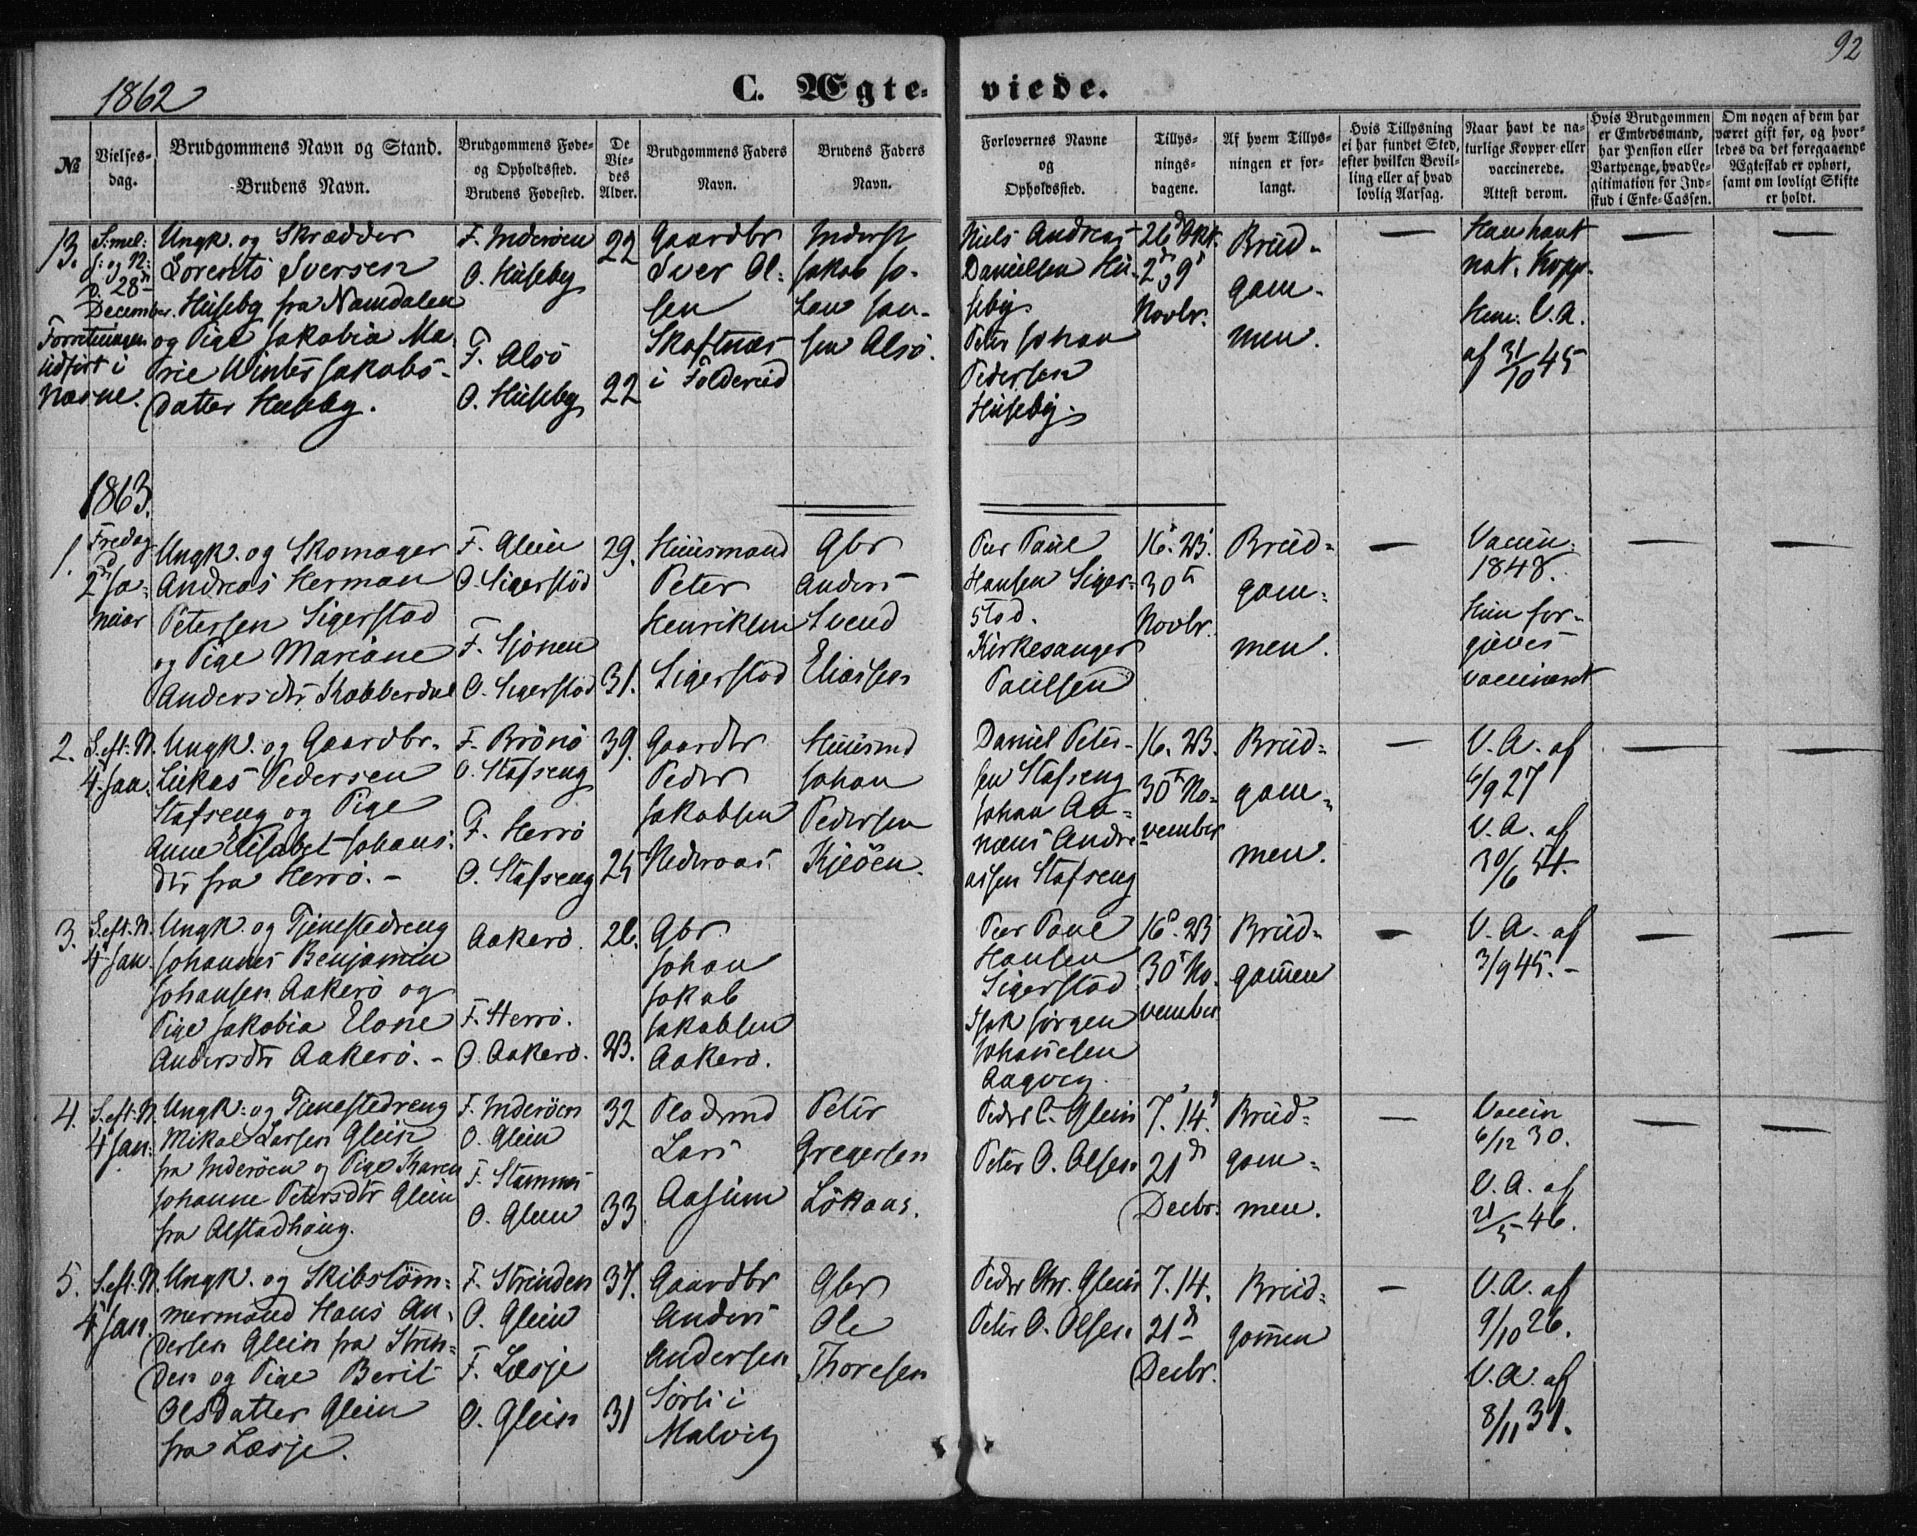 92
1862
C. Ægte-viede.
№
Vielses-dag.
Brudgommens Navn og Stand.
Brudens Navn.
Brudgommens Føde- og Opholdssted.
Brudens Fødested.
De Viedes Alder.
Brudgommens Faders Navn.
Brudens Faders Navn.
Forlovernes Navne og Opholdssted.
Tillysningsdagene.
Af hvem Tillysningen er forlangt.
Hvis Tillysning ei har fundet Sted, efter hvilken Bevilling eller af hvad lovlig Aarsag.
Naar havt de naturlige Kopper eller vaccinerede.
Attest derom.
Hvis Brudgommen er Embedsmand, har Pension eller Vartpenge, hvad Legitimation for Indskud i Enke-Cassen.
Om nogen af dem har været gift før, og hvorledes da det foregaaende Ægteskab er ophørt, samt om lovligt Skifte er holdt.
13.
S: mel:
J: og N:
D. 28
December.
Forretningen
udført i
Næsne.
Ungk. og Skrædder
Lorents Iversen
Huseby fra Namdalen
og Pige Jakobia Ma-
rie Winter Jakobs-
datter Huseby.
F. Inderøen
O. Huseby
F. Alsø
O. Huseby
22
22
Gaardbr
Iver Ol-
sen
Skaftnæs
i Foldereid
Inderst
Jakob Jo-
han Jan-
sen Alsø.
Niels Andreas
Danielsen Hu-
seby.
Peter Johan
Pedersen
Huseby.
26 Okt.
2 9
Novbr.
Brud-
gom-
men.
Han havt
nat. Kopp.
Hun: V.A.
af 31/10 45
1863.
1.
Fredag
d
2 Ja-
nuar
Ungk. og Skomager
Andreas Herman
Petersen Sigerstad
og Pige Mariane
Andersdtr Kobberdal
F. Glein
O. Sigerstad
F. Sjonen
O. Sigerstad
29.
31.
Huusmand
Peter
Henriksen
Sigerstad
Gbr
Anders
Svend
Eliassen
Peer Paul
Hansen Siger-
stad.
Kirkesanger
Paulsen
16. 23.
30
Novbr.
Brud-
gom-
men.
Vaccin.
1848.
Hun for-
gjæves
vaccineret
2.
S. eft. N.
4 Jan.
Ungk. og Gaardbr.
Lukas Pedersen
Stafseng og Pige
Anne Elisabet Johans-
dtr fra Herrø.
F. Brønø
O. Stafseng
F. Herrø
O. Stafseng
39.
25
Gaardbr
Peder
Jakobsen
Nederaas
Huusmd
Johan
Pedersen
Kjeøen.
Daniel Peter-
sen Stafseng
Johan An-
næus Andre
assen Stafseng
16. 23.
30 No-
vember
Brud-
gom-
men.
V. A. af
6/9 27
V. A. af
30/6 54.
3.
S. eft. N.
4 Jan.
Ungk. og Tjenestedreng
Johannes Benjamin
Johansen Aakerø og
Pige Jakobia Elone
Andersdtr Aakerø.
Aakerø.
F. Herrø.
O. Aakerø.
26.
23.
Gbr
Johan
Jakob
Jakobsen
Aakerø.
Peer Paul
Hansen
Sigerstad
Isak Jørgen
Johansen
Aagvig.
16. 23
30 No-
vember
Brud-
gommen
V. A. af
3/9 45.
4.
S. eft. N.
4 Jan.
Ungk. og Tjenestedreng
Mikal Larsen Glein
fra Inderøen og Pige Karen
Johanne Petersdtr Glein
fra Alstadhaug.
F. Inderøen
O. Glein
F. Stamnes
O. Glein
32
33
Pladsmd
Lars
Aasum
Peter
Gregersen
Løkaas.
Peder C. Glein
Peter O. Olsen
7. 14.
21
Decbr.
Brud-
gom-
men.
Vaccin
6/12 30.
V. A. af
21/5 46.
5.
S. eft. N.
4 Jan.
Ungk. og Skibstøm-
mermand Hans An-
dersen Glein fra Strin-
den og Pige Berit
Olsdatter Glein
fra Læsje.
F. Strinden
O. Glein
F. Læsje
O. Glein
37.
31
Gaardbr
Anders
Andersen
Sørli i
Malvik
Gbr
Ole
Thoresen
Peder Chr. Glein
Peter O. Olsen
7. 14.
21
Decbr.
Brud-
gommen
V. A. af
9/10 26.
V. A. af
8/11 31.